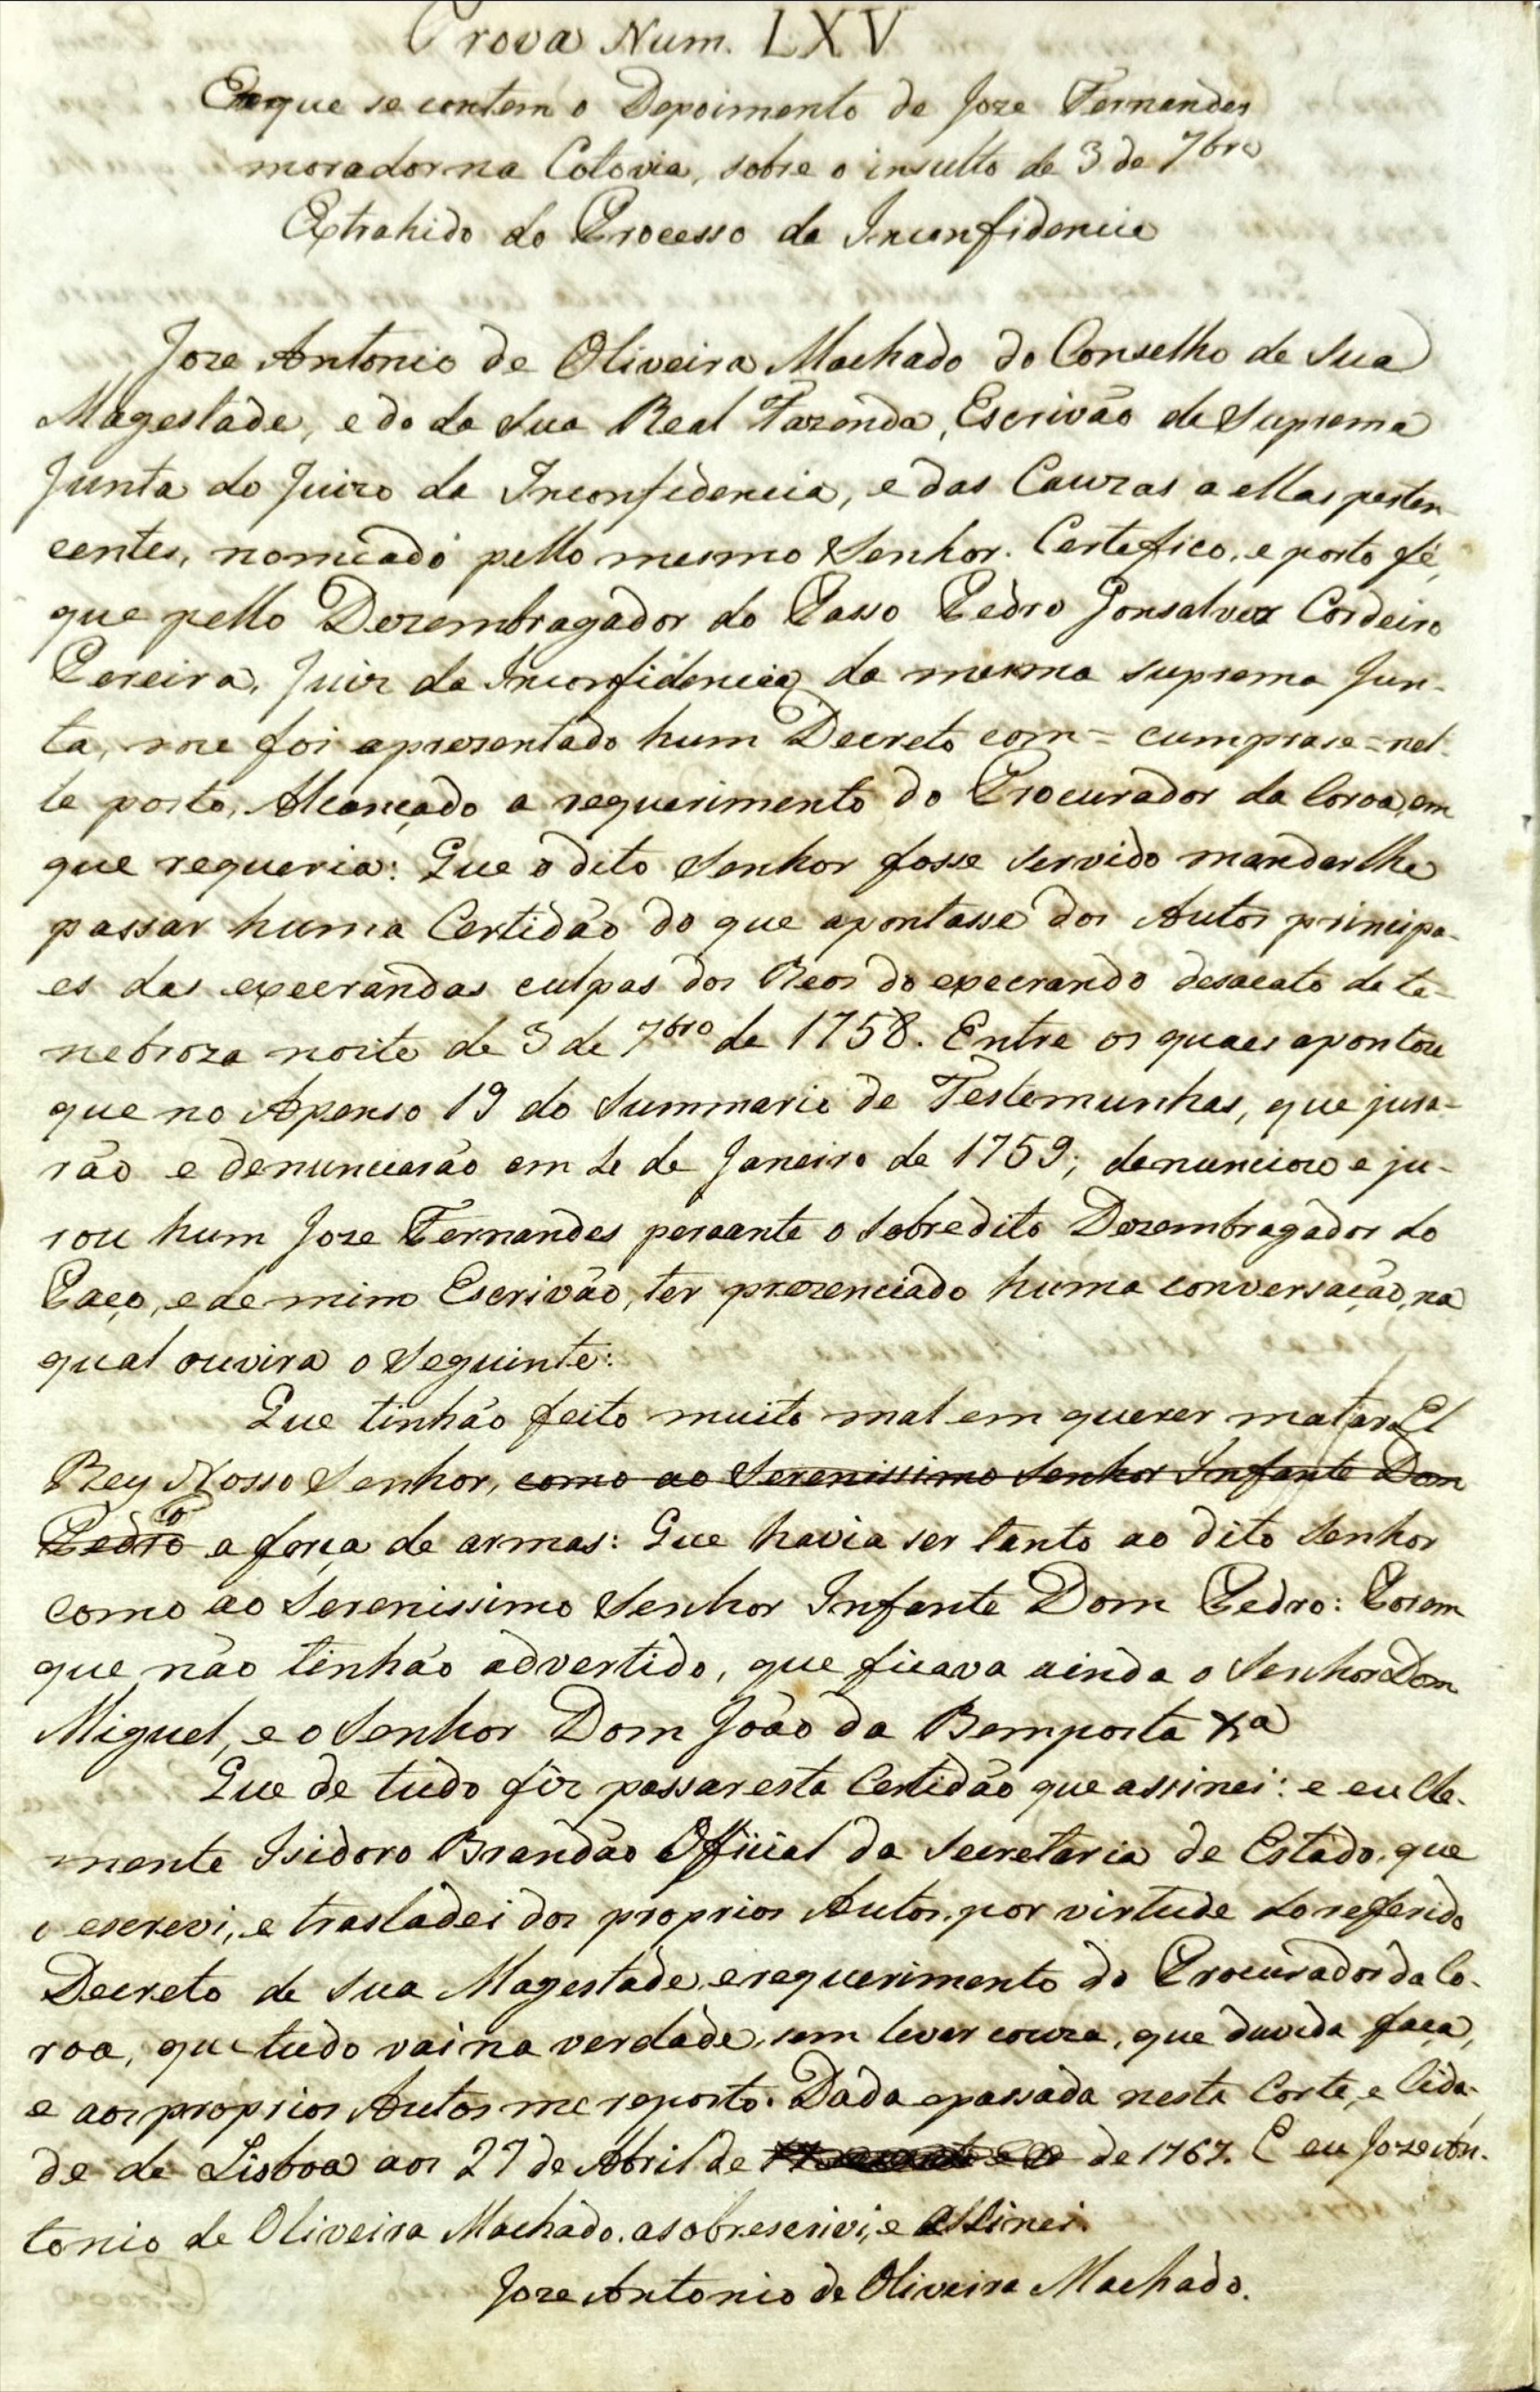 Prova Num. LXV
Emque se contem o Depoimento de Joze Fernandes
morador na Cotovia, sobre o insulto de 3 de 7bro
Extrahido do Processo da Inconfidencia
Joze Antonio de Oliveira Machado do Conselho de Sua
Magestade, e do da Sua Real Fazenda, Escrivão da Suprema
Junta do Juizo da Inconfidencia, e das Cauzas a ellas perten-
centes, nomeado pello mesmo Senhor. Certefico, e porto fé,
que pello Dezembragador do Passo Pedro Gonsalvez Cordeiro
Pereira, Juiz da Inconfidencia da mesma suprema Jun-
ta, me foi aprezentado hum Decreto com = cumprase = nel-
le posto, Alcançado a requerimento do Procurador da Coroa, em
que requeria: Que o dito Senhor fosse servido mandarlhe
passar huma Certidão do que apontasse dos Autos principa-
es das execrandas culpas dos Reos do execrando desacato da te-
nebroza noite de 3 de 7bro de 1758. Entre os quaes apontou
que no Apenso 19 do Summario de Testemunhas, que jura-
rão e denunciarão em 4 de Janeiro de 1759; denunciou e ju-
rou hum Joze Fernandes peraante o sobredito Dezembragador do
Paço, e de mim Escrivão, ter prezenciado huma conversação, na
qual ouvira o Seguinte:
Que tinhão feito muito mal em querer matar a El
Rey Nosso Senhor, como ao Serenissimo Senhor Infante Dom
Pedro a força de armas: Que havia ser tanto ao dito Senhor
como ao Serenissimo Senhor Infante Dom Pedro: Porem
que não tinhão advertido, que ficava ainda o Senhor Dom
Miguel, e o Senhor Dom João da Bemposta &a
Que de tudo fiz passar esta Certidão que assinei: e eu Cle-
mente Isidoro Brandão Official da Secretaria de Estado, que
o escrevi, e trasladei dos proprios Autos, por virtude do referido
Decreto de Sua Magestade, e requerimento do Procurador da Co-
roa, que tudo vai na verdade, sem levar couza, que duvida faça,
e aos proprios Autos me reporto. Dada e passada nesta Corte, e Cida-
de de Lisboa aos 27 de Abril de de 1767. E eu Joze An-
tonio de Oliveira Machado. a sobrescrivi, e assinei.
Joze Antonio de Oliveira Machado.